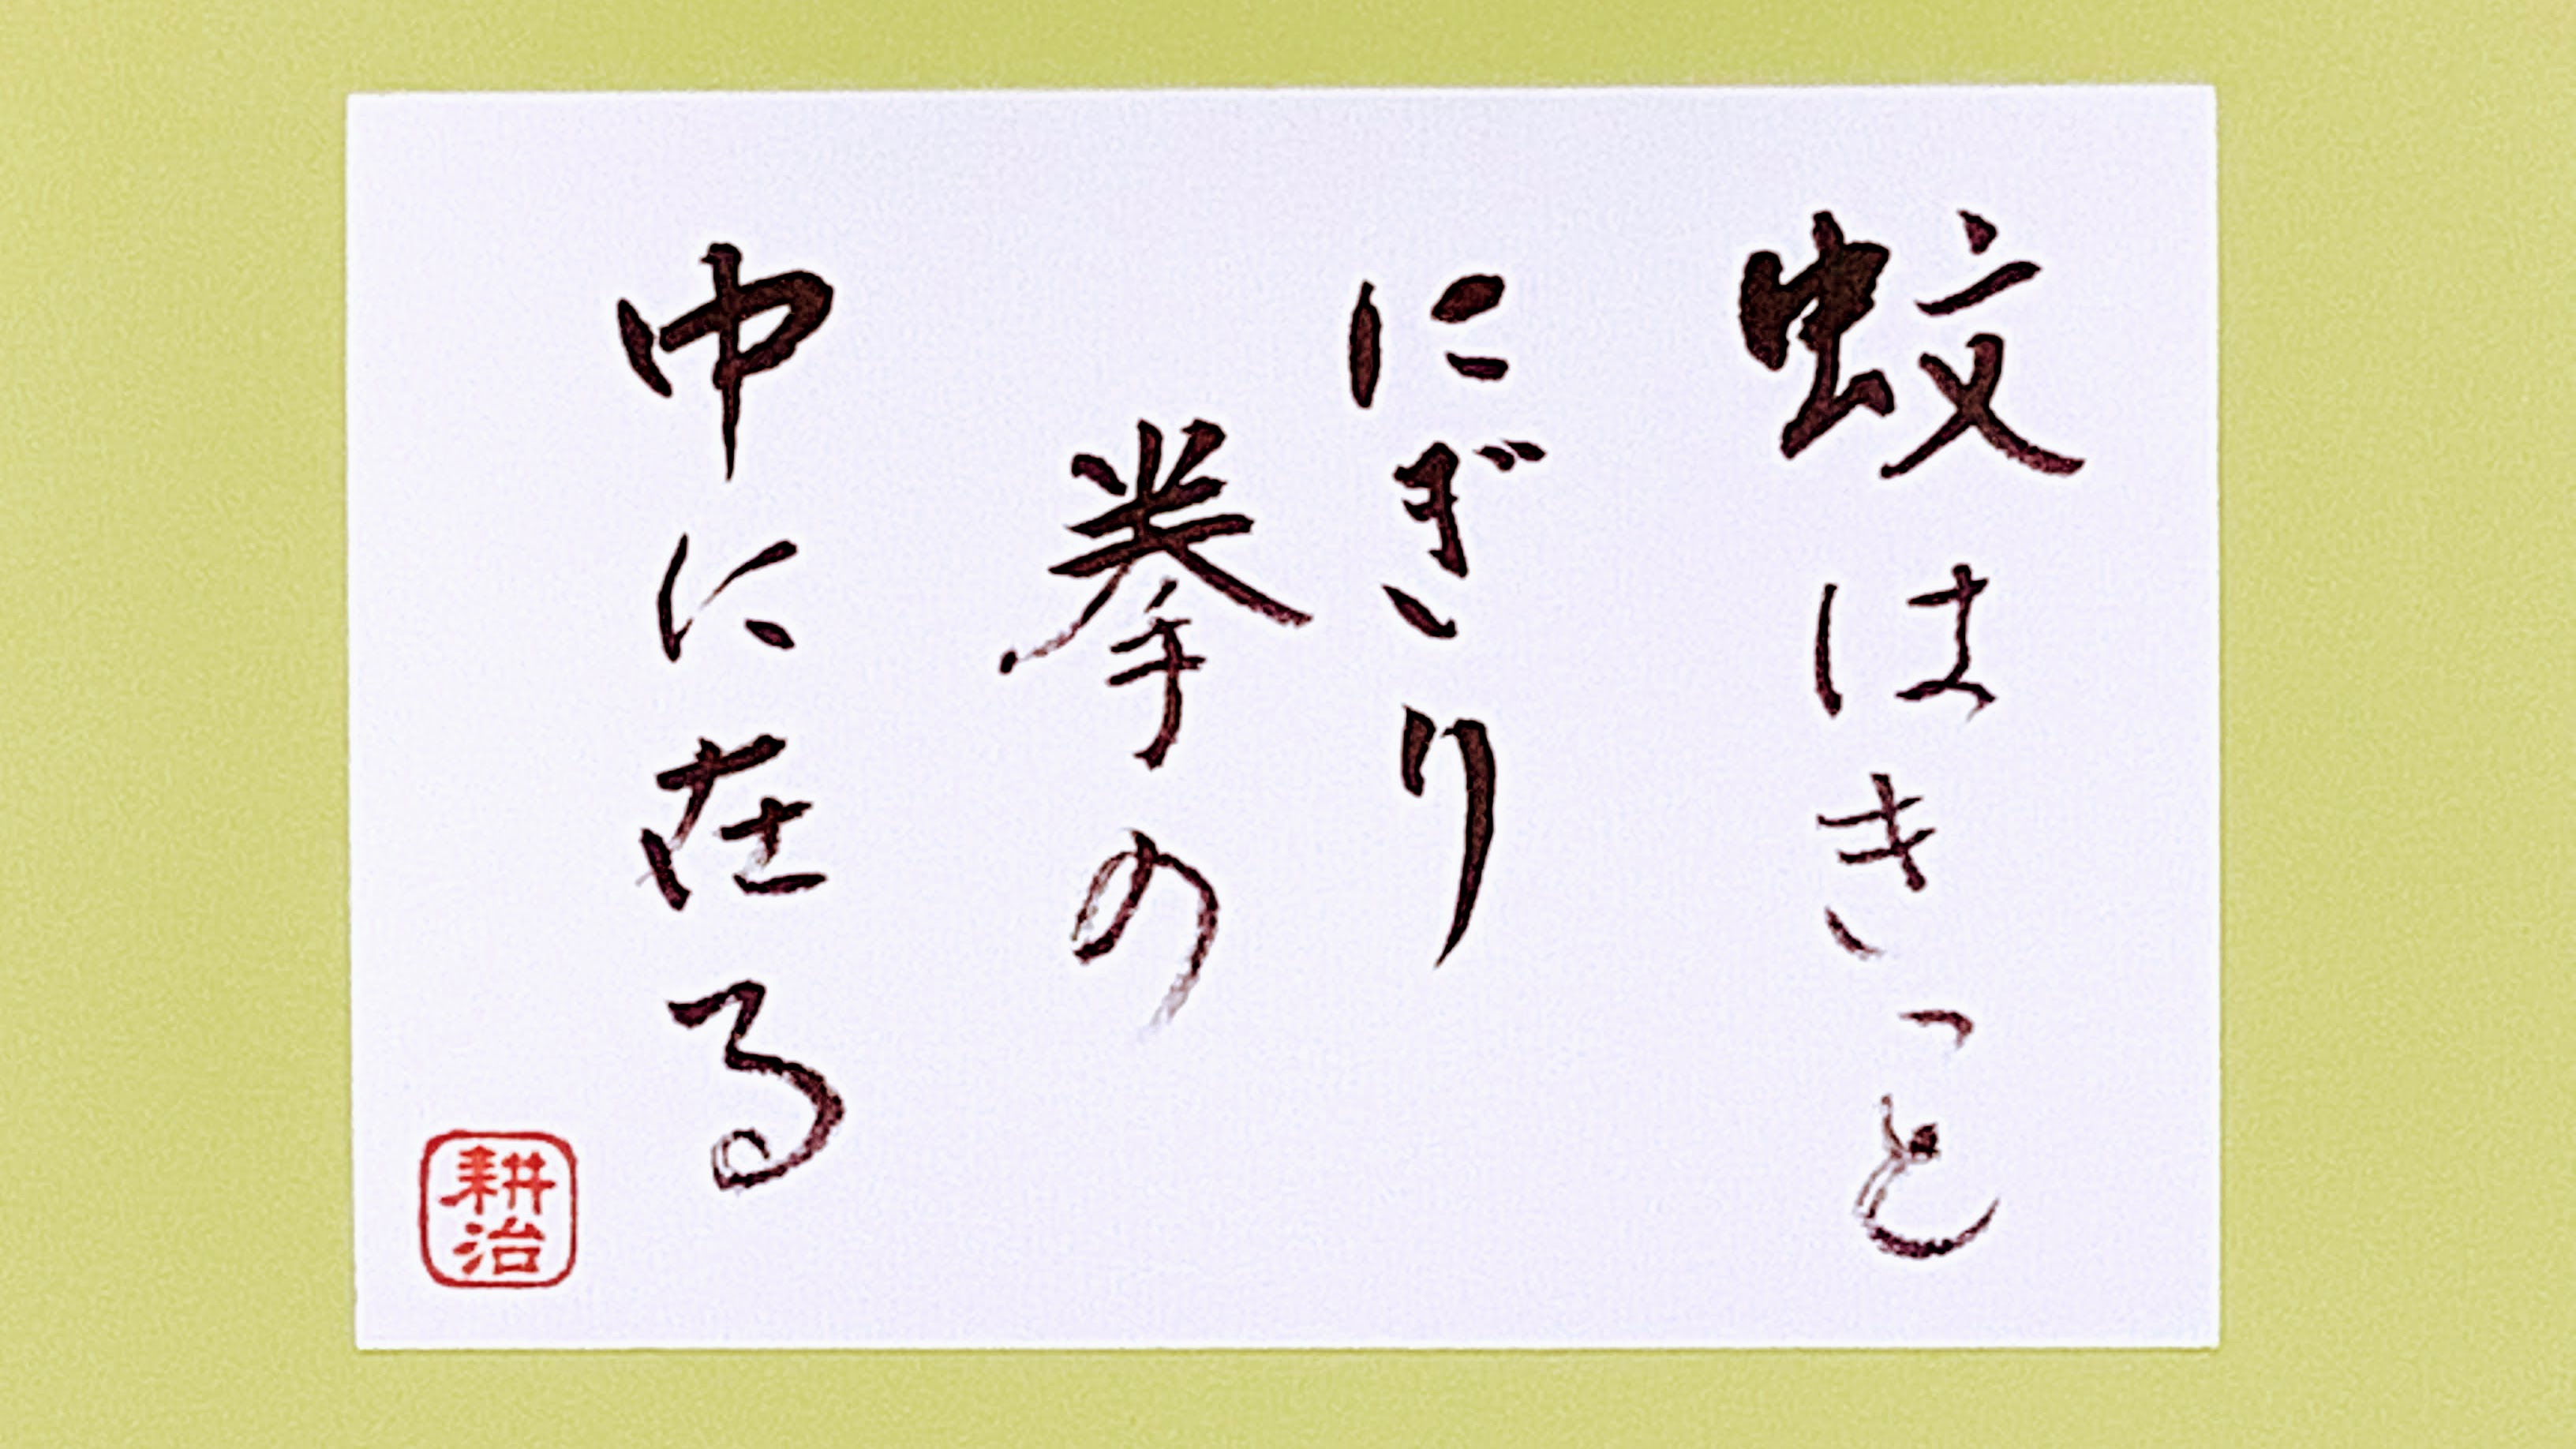 蚊はきっと
にぎり
拳の
中に在る
耕治